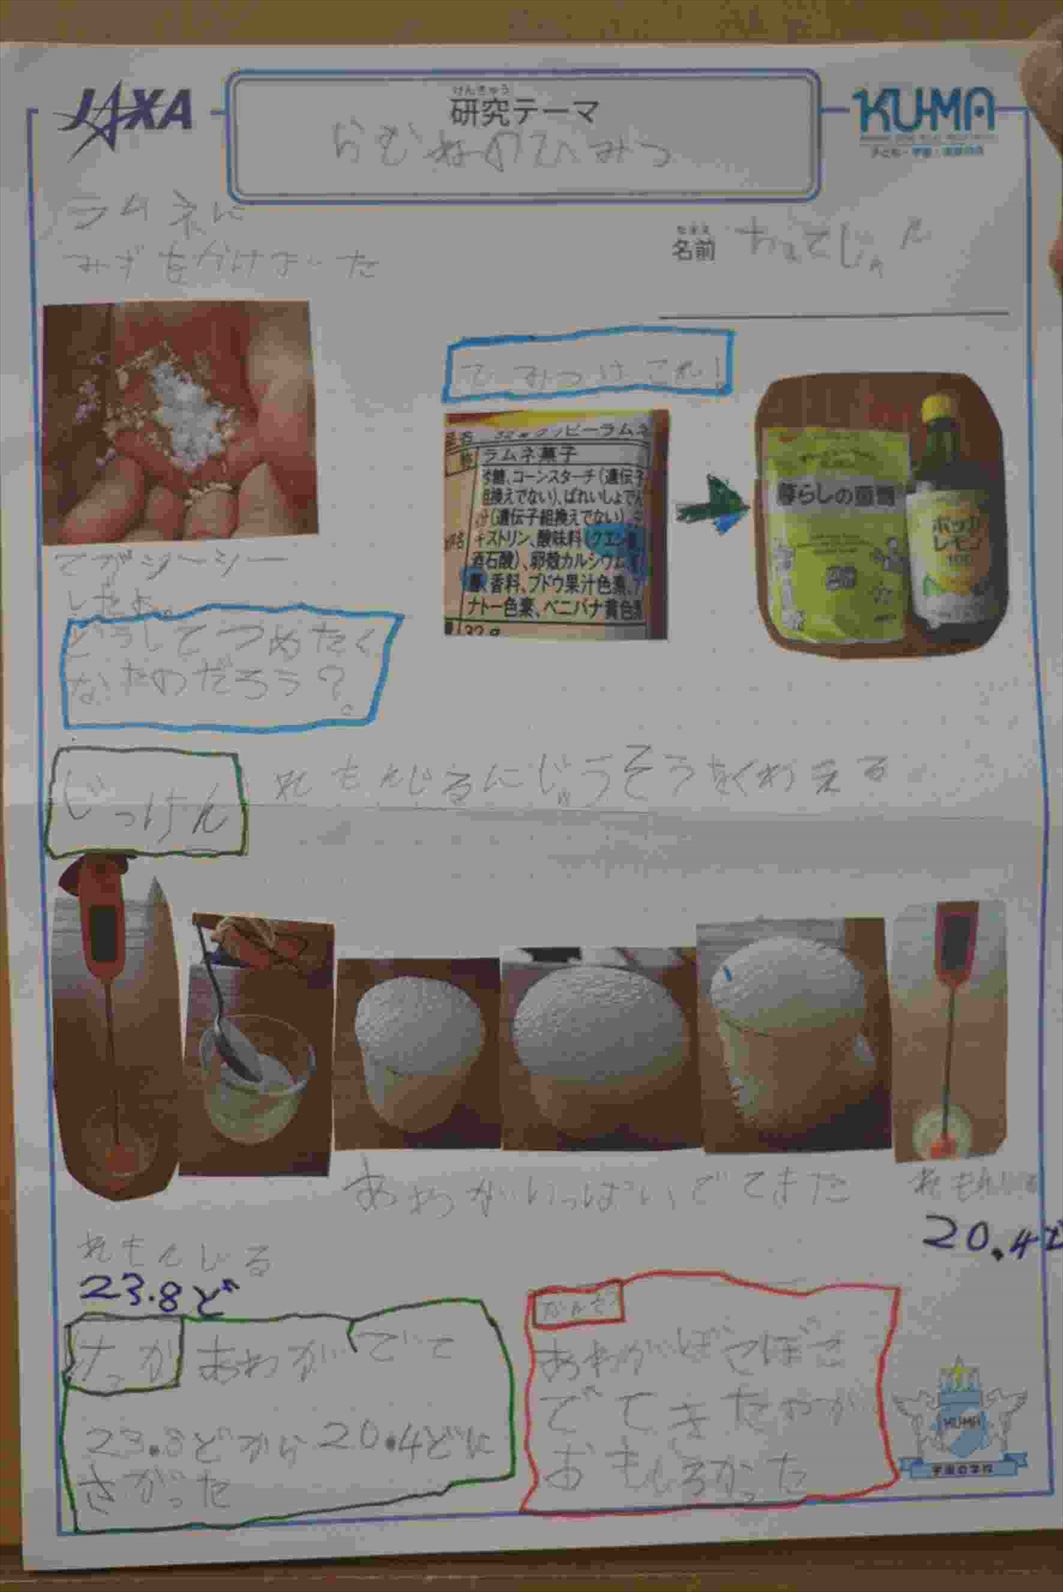 JAXA
けんきゅう
研究テーマ
らむねのひみつ
KU-MA
子ども・宇宙・未来の会
ラムネに
みずをかけました
なまえ
名前
ひみつはこれ！
ラムネ菓子
糖、コーンスターチ(遺伝子
組換えでない)、ばれいしょでん
(遺伝子組換えでない)、
キストリン、酸味料(クエン酸
酒石酸)、卵殻カルシウム、
香料、ブドウ果汁色素、
ナトー色素、ベニバナ黄色
暮らしの重曹
ポッカ
レモン
100
てがシーシー
したよ。
どうしてつめたく
なたのだろう？
じっけん
れもんじるにじゅうそうをくわえる
あわがいっぱいでてきた
れもんじる
20.4ど
れもんじる
23.8ど
けっか
あわがでて
23.8どから20.4どに
さがった
かんそう
あわがぼこぼこ
でてきたのが
おもしろかった
KUMA
宇宙の学校